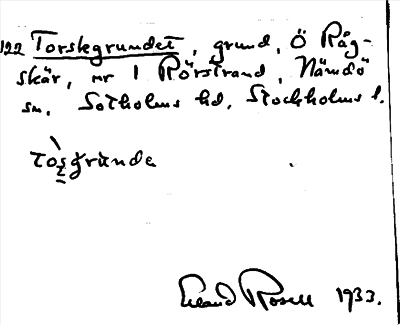 122 Torskgrundet, grund, Ö Råg-
skär, nr 1 Rörstrand, Nämdö
sn. Sotholms hd, Stockholms l.
tòsgrunda
Erland Rosell 1933.